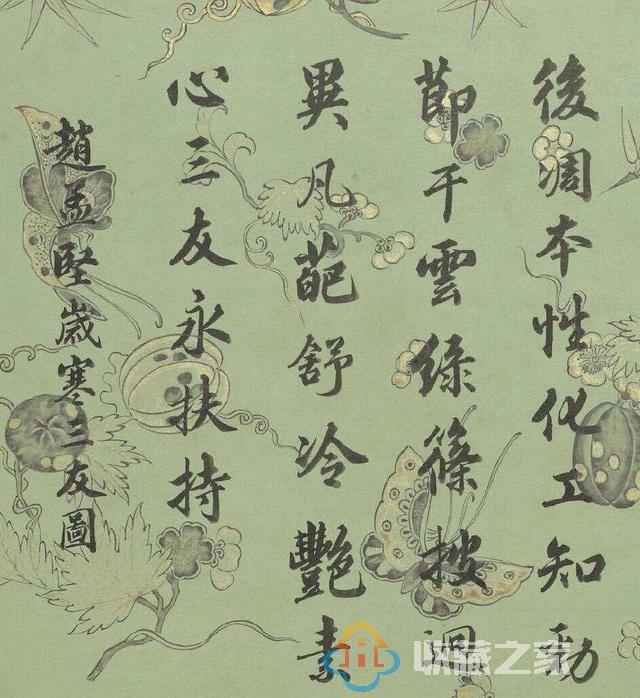 後凋本性化工知勁
節干雲綠篠披迥
異凡葩舒冷艷素
心三友永扶持
趙孟堅歲寒三友圖
收藏之家